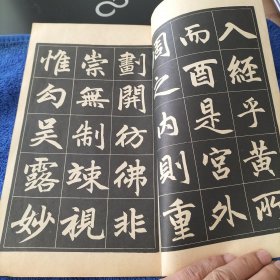 入經乎黄所
而酉是宮外
周之内則重
劃開彷彿非
崇無制竦視
惟勾吴露妙